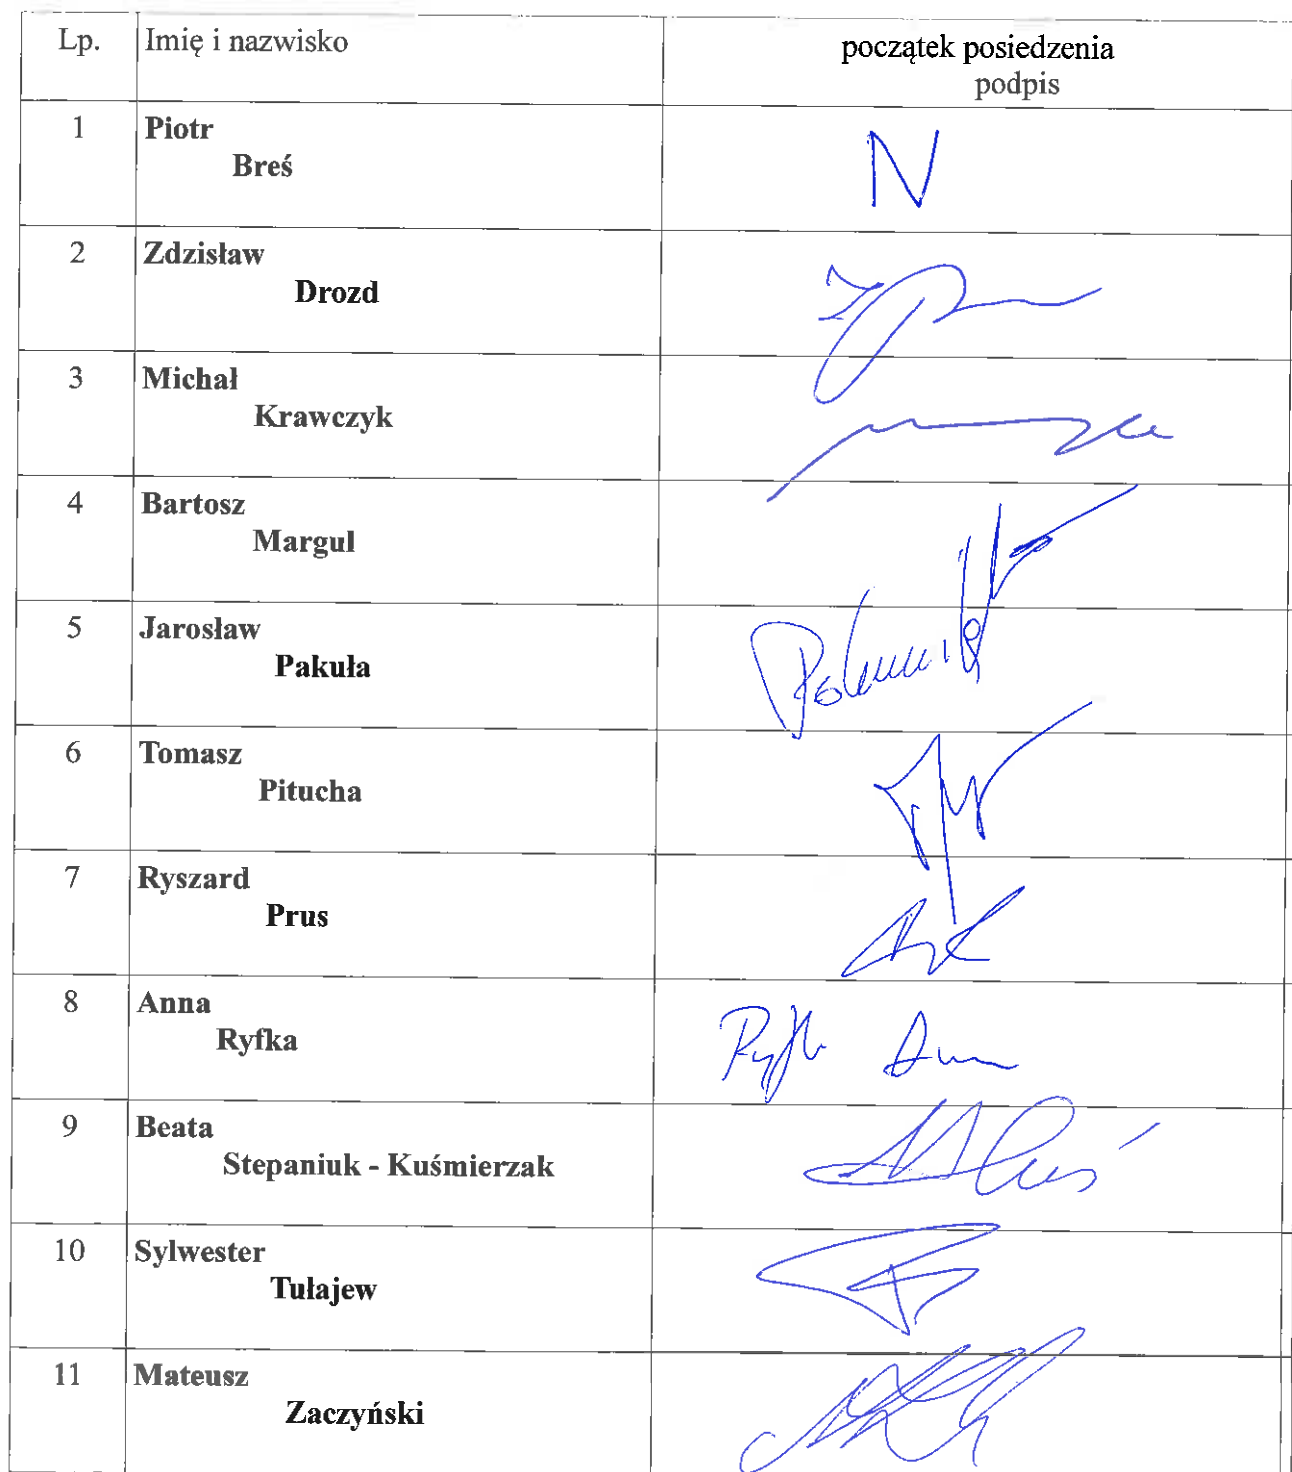 Lp. Imię i nazwisko początek posiedzenia
podpis
1 Piotr
Breś N
2 Zdzisław
Drozd
3 Michał
Krawczyk
4 Bartosz
Margul
5 Jarosław
Pakuła
6 Tomasz
Pitucha
7 Ryszard
Prus
8 Anna
Ryfka
9 Beata
Stepaniuk - Kuśmierzak
10 Sylwester
Tułajew
11 Mateusz
Zaczyński